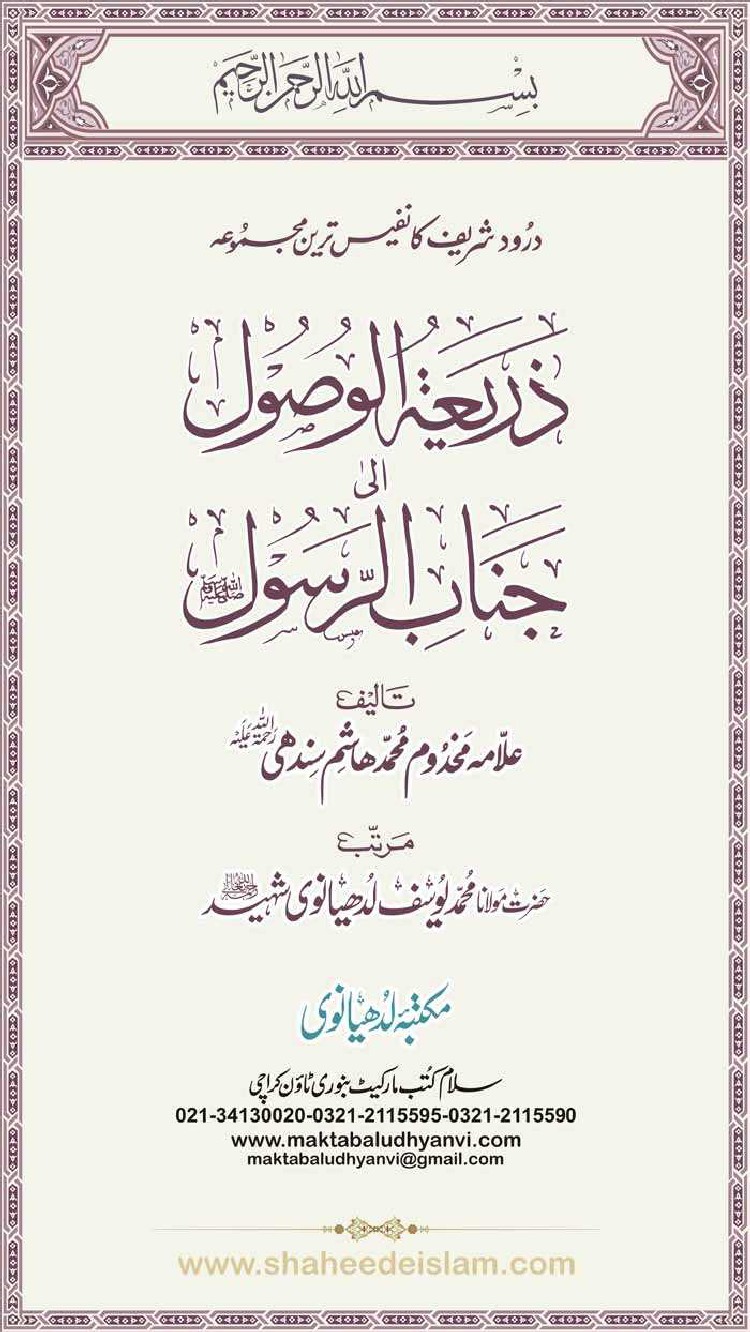 بسم الله الرحمن الرحيم
درُود شریف کا نفیس ترین مجموعہ
ذَرِیعَۃُ الوُصُول
الیٰ
جَنَابِ الرَّسُوْل ﷺ
تالیف
علّامہ مَخدُوم مُحمّد هاشِم سِندھی رحمۃ اللہ علیہ
مرتّب
حضرت مولانا مُحمّد یُوسُف لُدھیانوی شہید
مکتبۂ لُدھیانوی
سلام کُتب مارکیٹ بنوری ٹاؤن کراچی
021-34130020-0321-2115595-0321-2115590
www.maktabaludhyanvi.com
maktabaludhyanvi@gmail.com
www.shaheedeislam.com